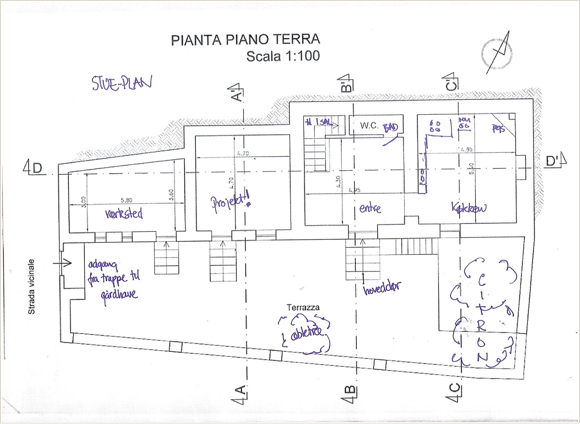 PIANTA PIANO TERRA
Scala 1:100
STUE-PLAN
A'
B'
C'
til 1. SAL
W.C.
BAD
D
D'
4.70
4.95
3.00
5.80
3.60
4.70
4.30
4.95
værksted
Projekt!
entre
Køkken
Strada vicinale
adgang
fra trappe til
gårdhave
hoveddør
Terrazza
æbletræ
CITRON
A
B
C